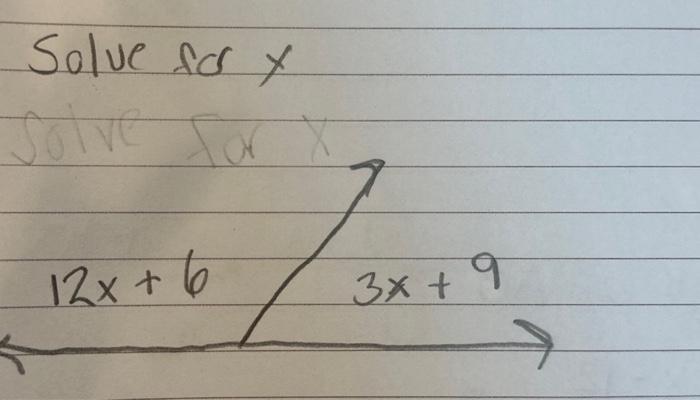 Solve for x
Solve for x
12x + 6
3x + 9